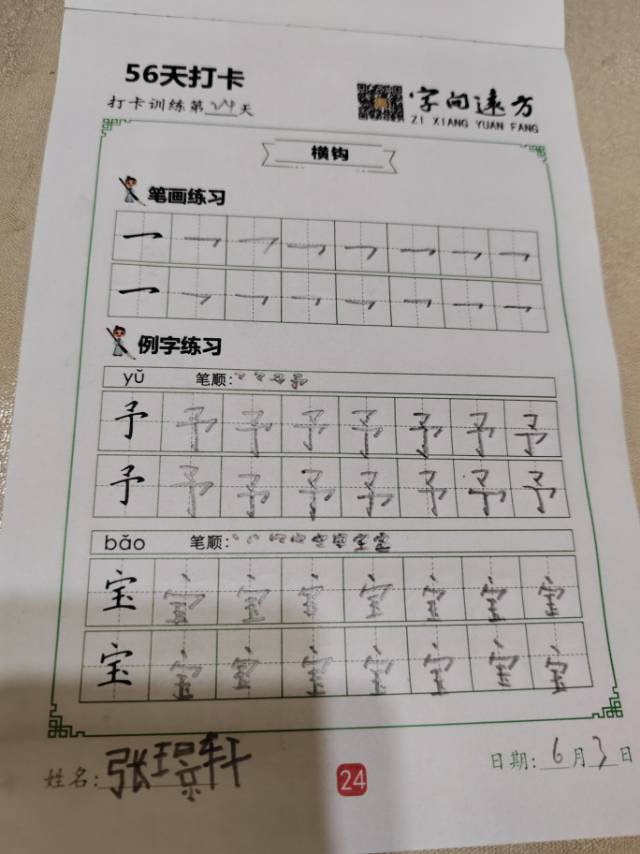 56天打卡
打卡训练第24天
字向远方
ZI XIANG YUAN FANG
横钩
笔画练习
例字练习
yǔ 笔顺:
予 予 予 予 予 予 予 予
予 予 予 予 予 予 予 予
bǎo 笔顺:
宝 宝 宝 宝 宝 宝 宝 宝
宝 宝 宝 宝 宝 宝 宝 宝
姓名:张璟轩
24
日期:6月3日